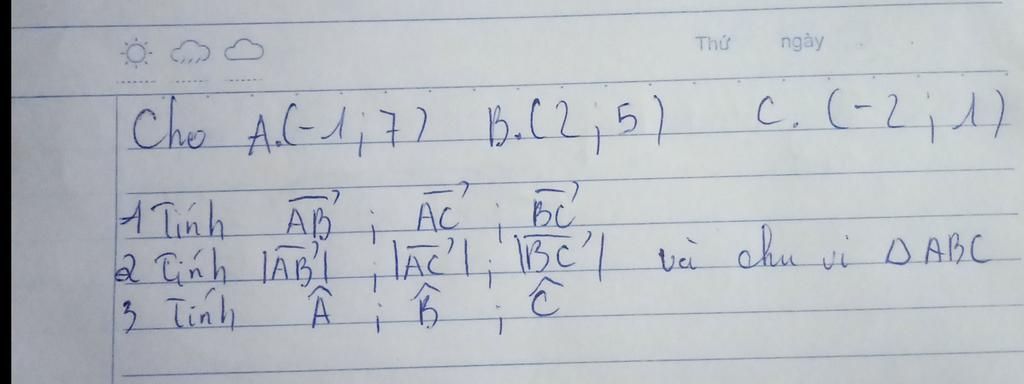 Thứ ngày
Cho A.(-1;7) B.(2;5) C.(-2;1)
1 Tính $\overrightarrow{AB}$ ; $\overrightarrow{AC}$ ; $\overrightarrow{BC}$
2 Tính $|\overrightarrow{AB}|$ ; $|\overrightarrow{AC}|$ ; $|\overrightarrow{BC}|$ và chu vi Δ ABC
3 Tính $\widehat{A}$ ; $\widehat{B}$ ; $\widehat{C}$